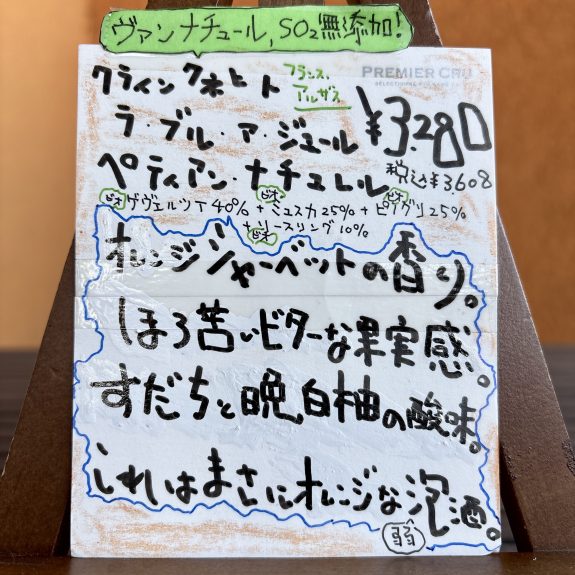 ヴァンナチュール,SO2無添加!
クライン クネヒト フランス,アルザス
PREMIER CRU
ラ・ブル・ア・ジュール ¥3.280
ペティアン・ナチュレル 税込¥3608
ビオ ゲヴェルツT 40%+ビオ ミュスカ 25%+ビオ ピノグリ 25%
+ビオ リースリング 10%
オレンジシャーベットの香り。
ほろ苦いビターな果実感。
すだちと晩白柚の酸味。
これはまさにオレンジな泡酒。
弱